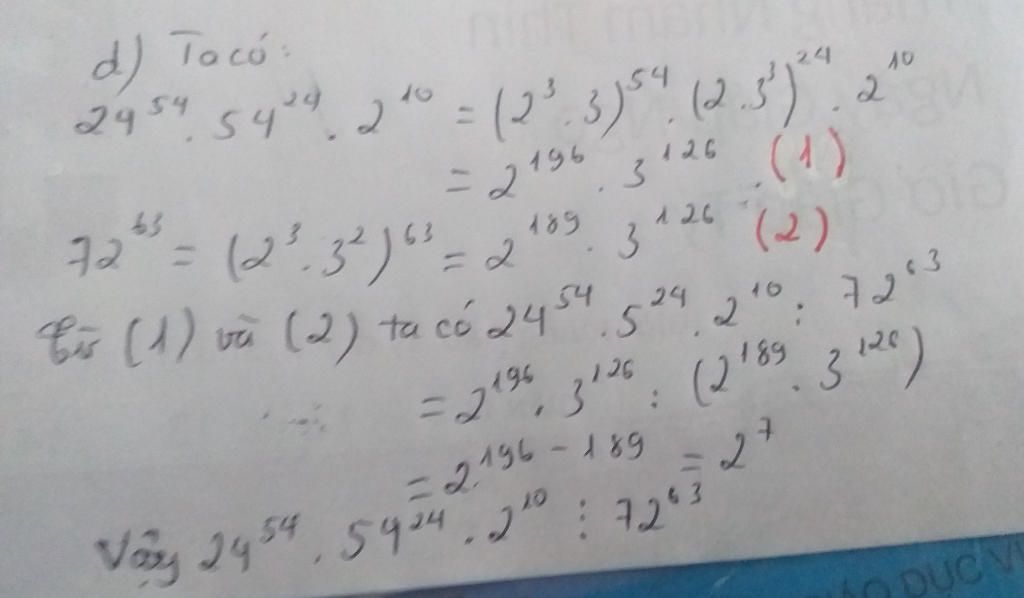 d) Ta có:
24^54 . 54^24 . 2^10 = (2^3 . 3)^54 . (2 . 3^3)^24 . 2^10
= 2^196 . 3^126 . (1)
72^63 = (2^3 . 3^2)^63 = 2^189 . 3^126 (2)
Từ (1) và (2) ta có 24^54 . 5^24 . 2^10 : 72^63
= 2^196 . 3^126 : (2^189 . 3^126)
= 2^196 - 189 = 2^7
Vậy 24^54 . 54^24 . 2^10 ⋮ 72^63
DỤC